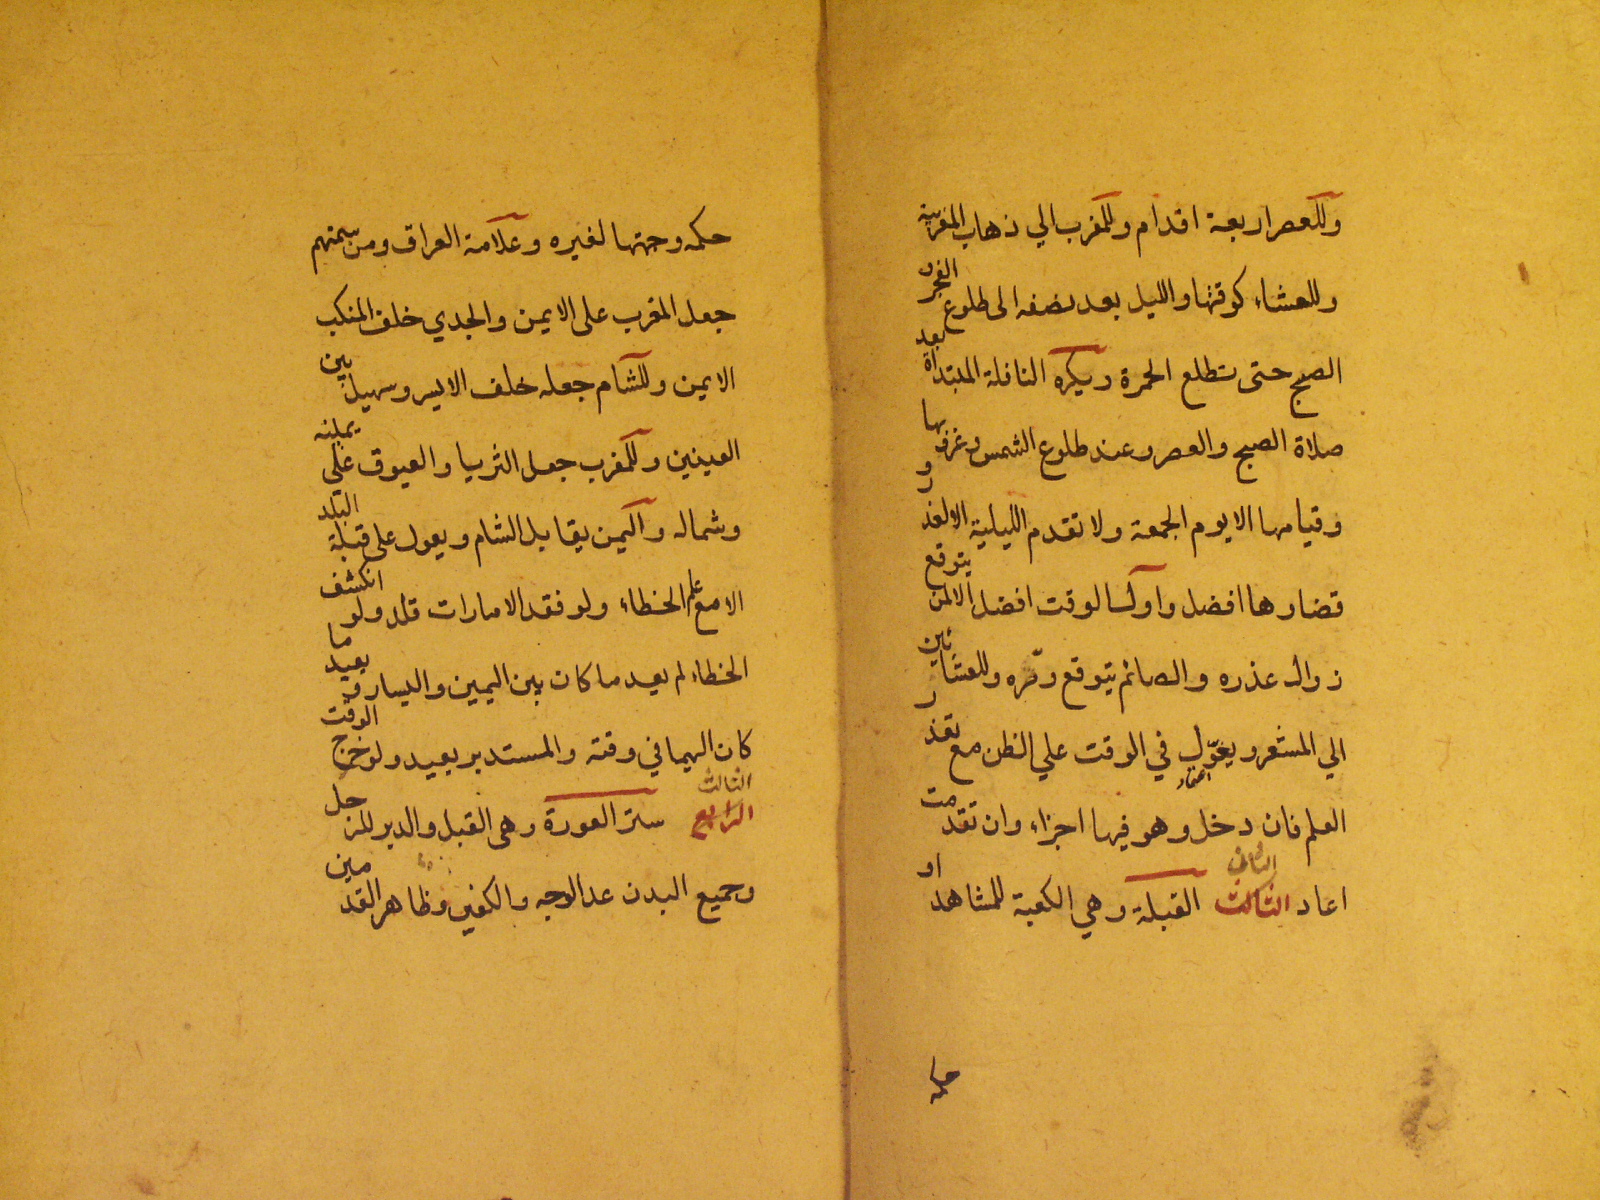 وللعصر اربعة اقدام وللمغرب الي ذهاب المغربية
وللعشاء كوقتها والليل بعد نصفه الى طلوع الفجر و
الصبح حتى تطلع الحمرة ويكره النافلة المبتداة بعد
صلاة الصبح والعصر وعند طلوع الشمس وغروبها
وقيامها الا يوم الجمعة ولا تقدم الليلية الا لعذر و
قضاوها افضل واول الوقت افضل الا لمن يتوقع
زوال عذره والصائم يتوقع وللعشائين
الي المشعر ويعول في الوقت علي الظن مع تعذر
العلم فان دخل وهو فيها اجزاء وان تقدمت
اعاد الثالث الثانى القبلة وهي الكعبة للمشاهد او
حكمه
حكمه وجهتها لغيره وعلامة العراق ومن سمتهم
جعل المغرب على الايمن والجدي خلف المنكب
الايمن وللشام جعله خلف الايسر وسهيل بين
العينين وللمغرب جعل الثريا والعيوق على يمينه
وشماله واليمن يقابل الشام ويعول على قبلة البلد
الا مع علم الخطاء ولو فقد الامارات قلد ولو انكشف
الخطاء لم يعيد ما كان بين اليمين واليسار ويعيد ما
كان اليهما في وقته والمستدبر يعيد ولو خرج الوقت
الرابع الثالث ستر العورة وهى القبل والدبر للرجل
وجميع البدن عدا الوجه والكفين وظاهر القدمين